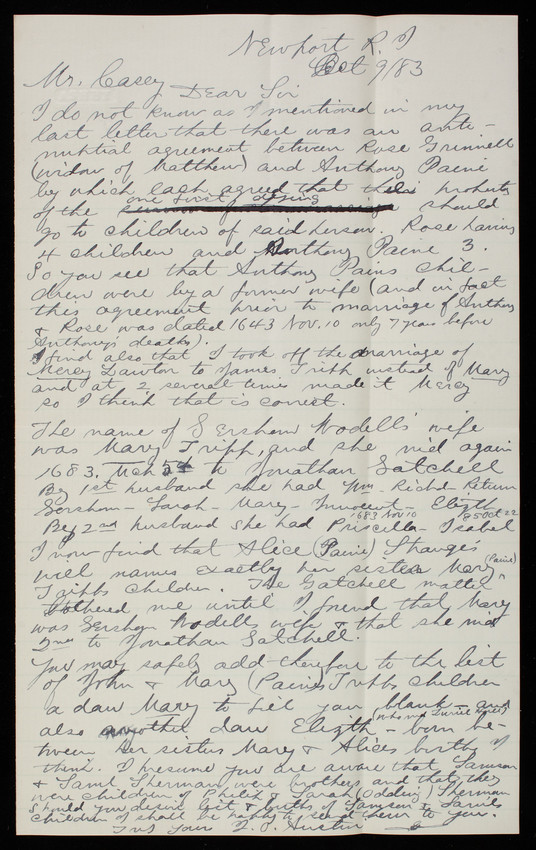 Newport R. I
Oct 9/83
Mr. Casey
Dear Sir
I do not know as I mentioned in my
last letter that there was an ante-
nuptial agreement between Rose Grinnell
(widow of Matthew) and Anthony Paine
by which each agreed that their property
of the one first dying should
go to children of said person. Rose having
4 children and Anthony Paine 3.
So you see that Anthony Pains chil-
dren were by a former wife (and in fact
this agreement prior to marriage of Anthony
& Rose was dated 1643 Nov. 10 only 7 years before
Anthony's death).
I find also that I took off the marriage of
Mercy Lawton to James Tripp instead of Mary
and at 2 several times made it Mercy
so I think that is correct.
The name of Gershom Wodells wife
was Mary Tripp, and she m'd again
1683. Mch 5 to Jonathan Gatchell
By 1st husband she had Wm. Richd - Return
Gershom - Sarah - Mary - Innocent - Elizth
1683 Nov 10 85 Oct 22
By 2nd husband she had Priscilla - Isabel
I now find that Alice (Paine) Strange's
will names exactly her sister Mary (Paine)
Tripps children. The Gatchell matter
bothered me until I found that Mary
was Gershom Wodells wife & that she ma
2nd to Jonathan Gatchell.
You may safely add therefore to the list
of John & Mary (Paine) Tripps children
a dau Mary to fill your blank - and
also another dau Elizth - born be-
tween her sisters Mary & Alices births I
think. I presume you are aware that Samson
& Saml Sherman were brothers and that they
were children of Philip & Sarah (Odding) Sherman
Should you desire list & births of Samson & Samls
children I shall be happy to send them to you.
Truly Yours J. O. Austin